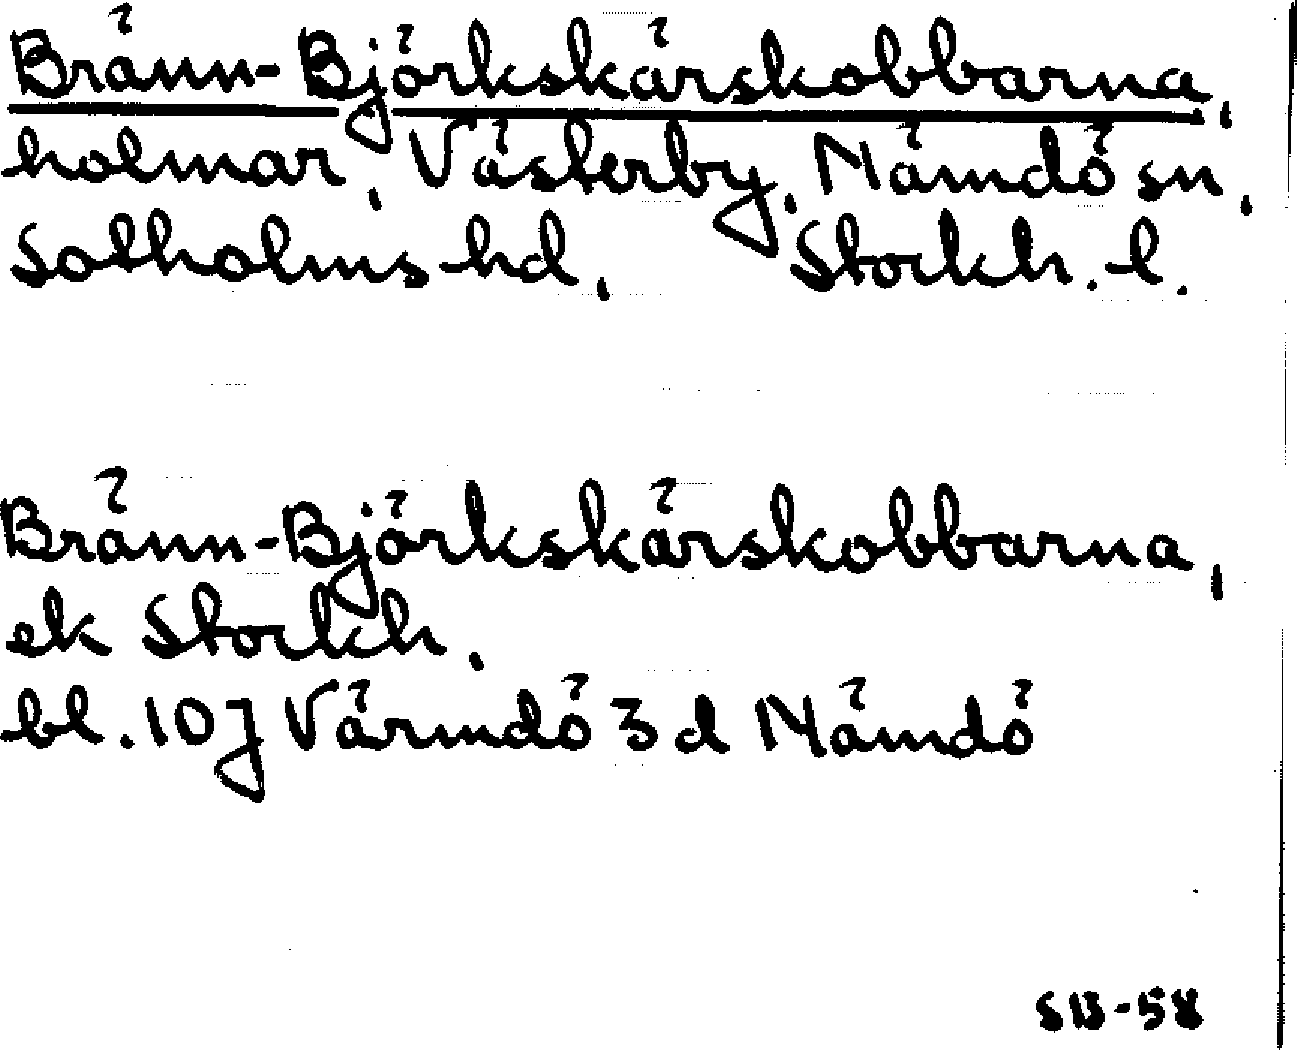 Bränn-Björkskärskobbarna,
holmar, Västerby, Nämdö sn,
Sotholms hd, Stockh. l.
Bränn-Björkskärskobbarna,
ek Stockh.
bl. 107 Värmdö 3 d Nämdö
SB-58